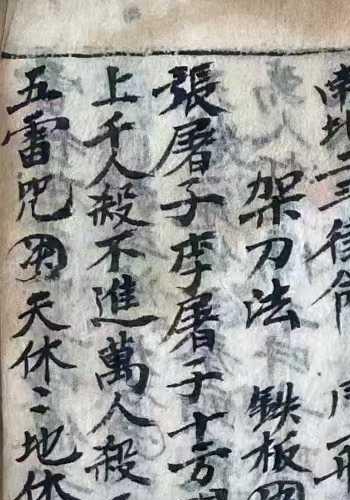 南地
架刀法 鉄板
張屠子李屠子十方
上千人殺不進萬人殺
五雷咒 天休〻地休